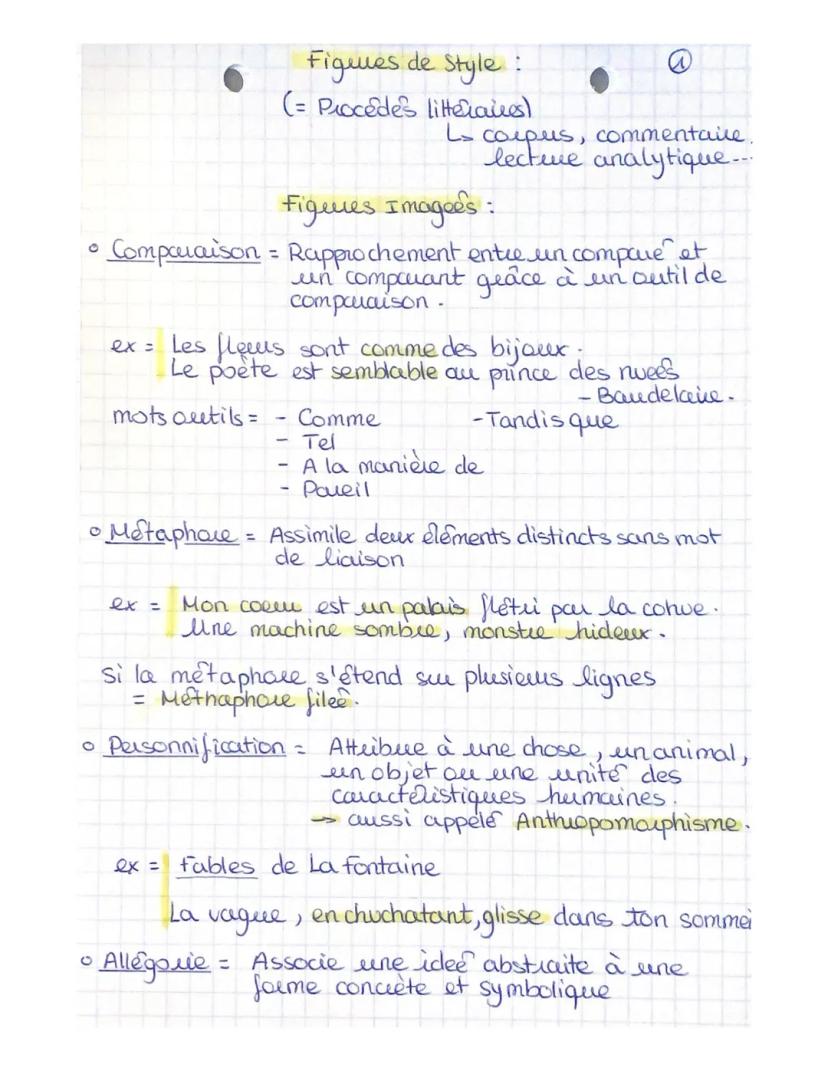 Figures de Style : 1
(= Procédés littéraires)
↳ corpus, commentaire.
lecture analytique...
Figures Imagées :
Comparaison = Rapprochement entre un comparé et
un comparant grâce à un outil de
comparaison.
ex = Les fleurs sont comme des bijoux.
Le poète est semblable au prince des nueés
- Baudelaire.
mots outils = - Comme - Tandis que
- Tel
- A la manière de
- Pareil
Métaphore = Assimile deux éléments distincts sans mot
de liaison
ex = Mon coeur est un palais flétri par la cohue.
Une machine sombre, monstre hideux.
si la métaphore s'étend sur plusieurs lignes
= Méthaphore fileé.
Personnification = Attribue à une chose, un animal,
un objet ou une unité des
caractéristiques humaines.
→ aussi appelé Anthropomorphisme.
ex = Fables de La Fontaine
La vague, en chuchotant, glisse dans ton sommei
Allégorie = Associe une ideé abstraite à une
forme concrète et symbolique